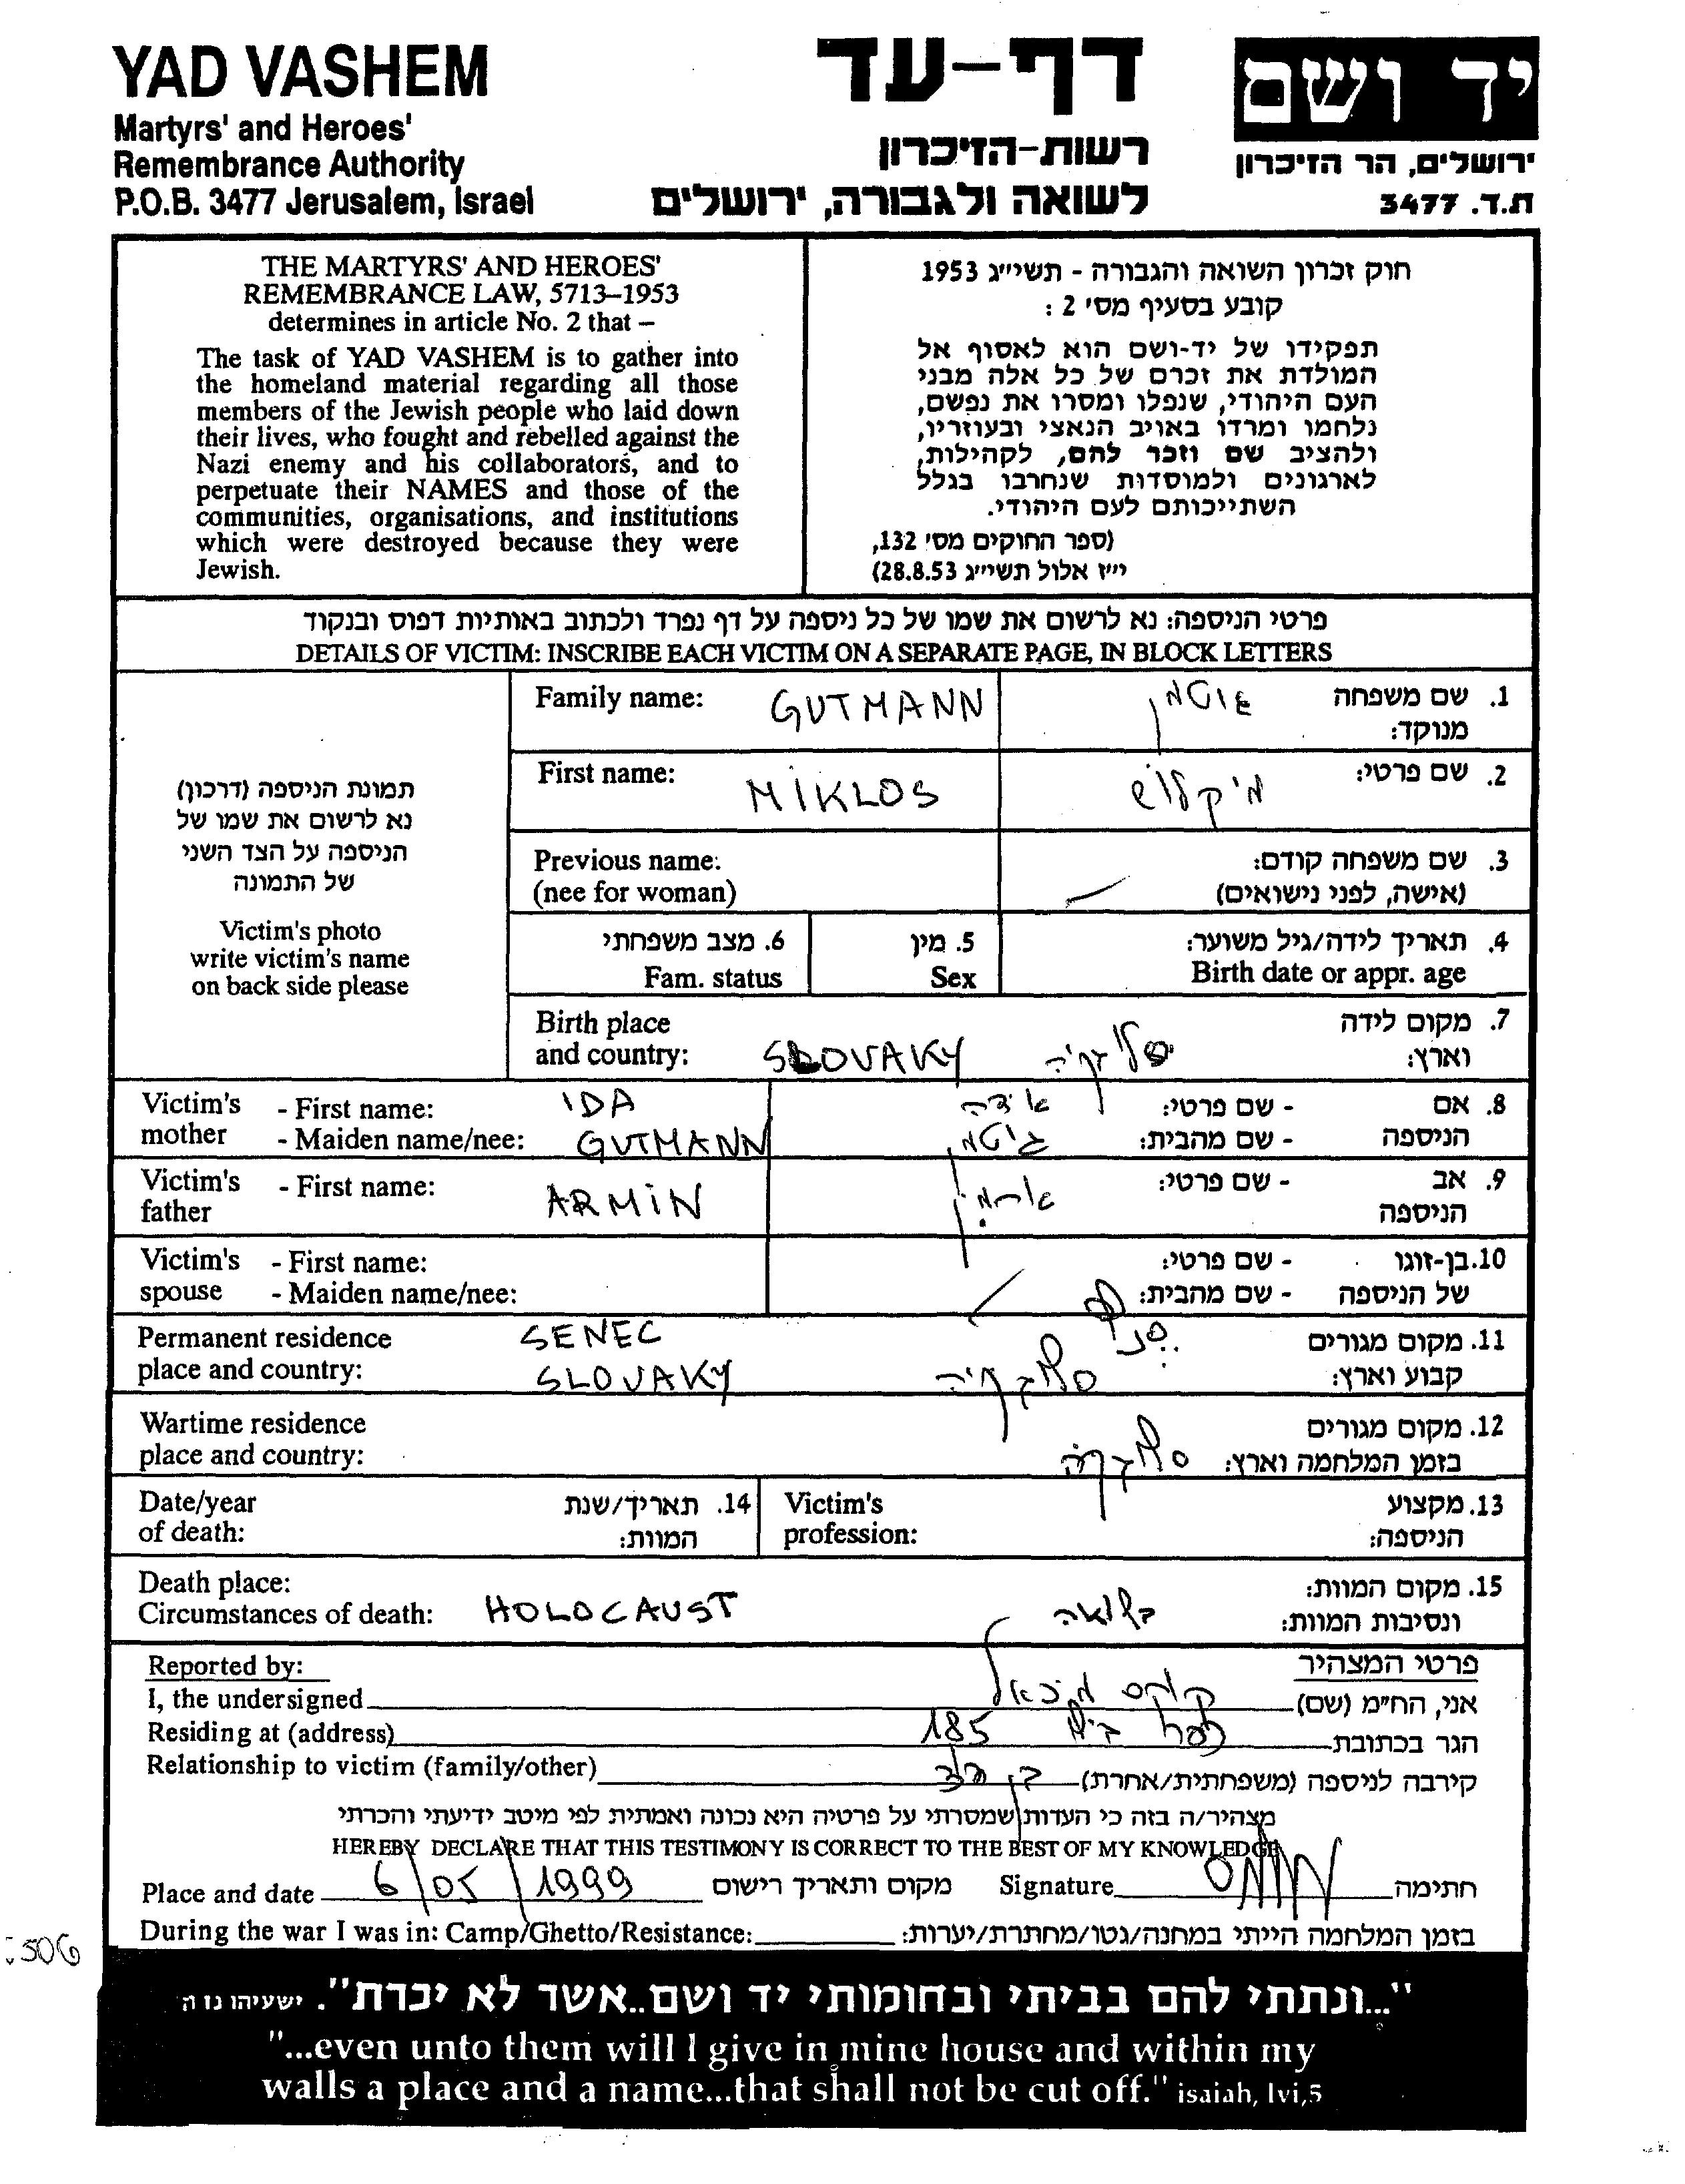 YAD VASHEM
Martyrs' and Heroes'
Remembrance Authority
P.O.B. 3477 Jerusalem, Israel
דף-עד
רשות-הזיכרון
לשואה ולגבורה, ירושלים
יד ושם
ירושלים, הר הזיכרון
ת.ד. 3477
THE MARTYRS' AND HEROES'
REMEMBRANCE LAW, 5713–1953
determines in article No. 2 that –
The task of YAD VASHEM is to gather into
the homeland material regarding all those
members of the Jewish people who laid down
their lives, who fought and rebelled against the
Nazi enemy and his collaborators, and to
perpetuate their NAMES and those of the
communities, organisations, and institutions
which were destroyed because they were
Jewish.
חוק זכרון השואה והגבורה - תשי״ג 1953
קובע בסעיף מס׳ 2 :
תפקידו של יד-ושם הוא לאסוף אל
המולדת את זכרם של כל אלה מבני
העם היהודי, שנפלו ומסרו את נפשם,
נלחמו ומרדו באויב הנאצי ובעוזריו,
ולהציב שם וזכר להם, לקהילות,
לארגונים ולמוסדות שנחרבו בגלל
השתייכותם לעם היהודי.
(ספר החוקים מס׳ 132,
י״ז אלול תשי״ג 28.8.53)
פרטי הניספה: נא לרשום את שמו של כל ניספה על דף נפרד ולכתוב באותיות דפוס ובנקוד
DETAILS OF VICTIM: INSCRIBE EACH VICTIM ON A SEPARATE PAGE, IN BLOCK LETTERS
תמונת הניספה (דרכון)
נא לרשום את שמו של
הניספה על הצד השני
של התמונה
Victim's photo
write victim's name
on back side please
Family name: GUTMANN גוטמן 1. שם משפחה
מנוקד:
First name: MIKLOS מיקלוש 2. שם פרטי:
Previous name: 3. שם משפחה קודם:
(nee for woman) (אישה, לפני נישואים)
6. מצב משפחתי 5. מין 4. תאריך לידה/גיל משוער:
Fam. status Sex Birth date or appr. age
Birth place 7. מקום לידה
and country: SLOVAKY וארץ:
Victim's - First name: IDA אידה - שם פרטי: 8. אם
mother - Maiden name/nee: GUTMANN גוטמן - שם מהבית: הניספה
Victim's - First name: ARMIN ארמין - שם פרטי: 9. אב
father הניספה
Victim's - First name: - שם פרטי: 10. בן-זוגו
spouse - Maiden name/nee: - שם מהבית: של הניספה
Permanent residence SENEC סנץ 11. מקום מגורים
place and country: SLOVAKY סלובקיה קבוע וארץ:
Wartime residence 12. מקום מגורים
place and country: סלובקיה בזמן המלחמה וארץ:
Date/year 14. תאריך/שנת Victim's 13. מקצוע
of death: המוות: profession: הניספה:
Death place: 15. מקום המוות:
Circumstances of death: HOLOCAUST בשואה ונסיבות המוות:
Reported by: פרטי המצהיר
I, the undersigned מיכאל אני, הח״מ (שם)
Residing at (address) 185 הגר בכתובת
Relationship to victim (family/other) בן דוד קירבה לניספה (משפחתית/אחרת)
מצהיר/ה בזה כי העדות שמסרתי על פרטיה היא נכונה ואמתית לפי מיטב ידיעתי והכרתי
HEREBY DECLARE THAT THIS TESTIMONY IS CORRECT TO THE BEST OF MY KNOWLEDGE
Place and date 6/05/1999 מקום ותאריך רישום Signature חתימה
During the war I was in: Camp/Ghetto/Resistance: בזמן המלחמה הייתי במחנה/גטו/מחתרת/יערות:
506
"...ונתתי להם בביתי ובחומותי יד ושם..אשר לא יכרת". ישעיהו נז ה
"...even unto them will I give in mine house and within my
walls a place and a name...that shall not be cut off." isaiah, lvi,5